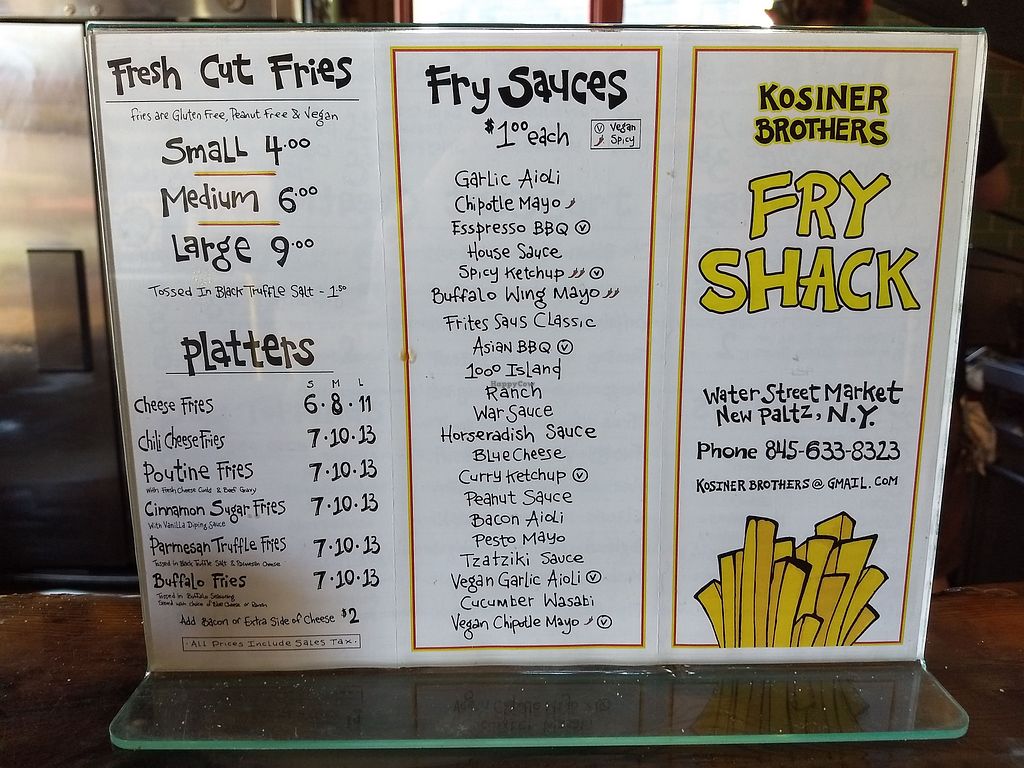 Fresh Cut Fries
fries are Gluten Free, Peanut Free & Vegan
Small 4.00
Medium 6.00
Large 9.00
Tossed In Black Truffle Salt - 1.50
Platters
S M L
Cheese Fries 6 · 8 · 11
Chili Cheese Fries 7 · 10 · 13
Poutine Fries 7 · 10 · 13
With Fresh Cheese Curds & Beef Gravy
Cinnamon Sugar Fries 7 · 10 · 13
With Vanilla Diping Sauce
Parmesan Truffle Fries 7 · 10 · 13
Tossed in Black Truffle Salt & Parmesan Cheese
Buffalo Fries 7 · 10 · 13
Tossed in Buffalo Seasoning
Served with choice of Blue Cheese or Ranch
Add Bacon or Extra Side of Cheese $2
· All Prices Include Sales Tax ·
Fry Sauces
$1.00 each
V Vegan
Spicy
Garlic Aioli
Chipotle Mayo
Esspresso BBQ V
House Sauce
Spicy Ketchup V
Buffalo Wing Mayo
Frites Saus Classic
Asian BBQ V
1000 Island
HappyCow
Ranch
War Sauce
Horseradish Sauce
Blue Cheese
Curry Ketchup V
Peanut Sauce
Bacon Aioli
Pesto Mayo
Tzatziki Sauce
Vegan Garlic Aioli V
Cucumber Wasabi
Vegan Chipotle Mayo V
KOSINER
BROTHERS
FRY
SHACK
Water Street Market
New Paltz, N.Y.
Phone 845-633-8323
KOSINER BROTHERS @ GMAIL.COM